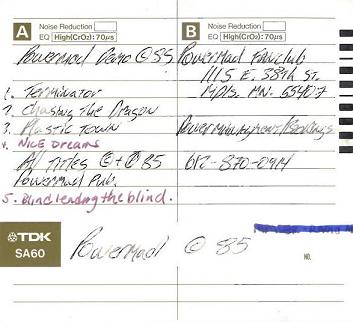 A
Noise Reduction
EQ High(CrO2): 70µs
B
Noise Reduction
EQ High(CrO2): 70µs
PowerMad Demo © 85
1. Terminator
2. Chasing The Dragon
3. Plastic Town
4. Nice Dreams
All Titles ©+℗ 85
PowerMad Pub.
5. Blind leading the blind.
PowerMad Fanclub
1115 E. 38th St.
Mpls. MN. 55407
612-870-0914
TDK
SA60
PowerMad © 85
NO.